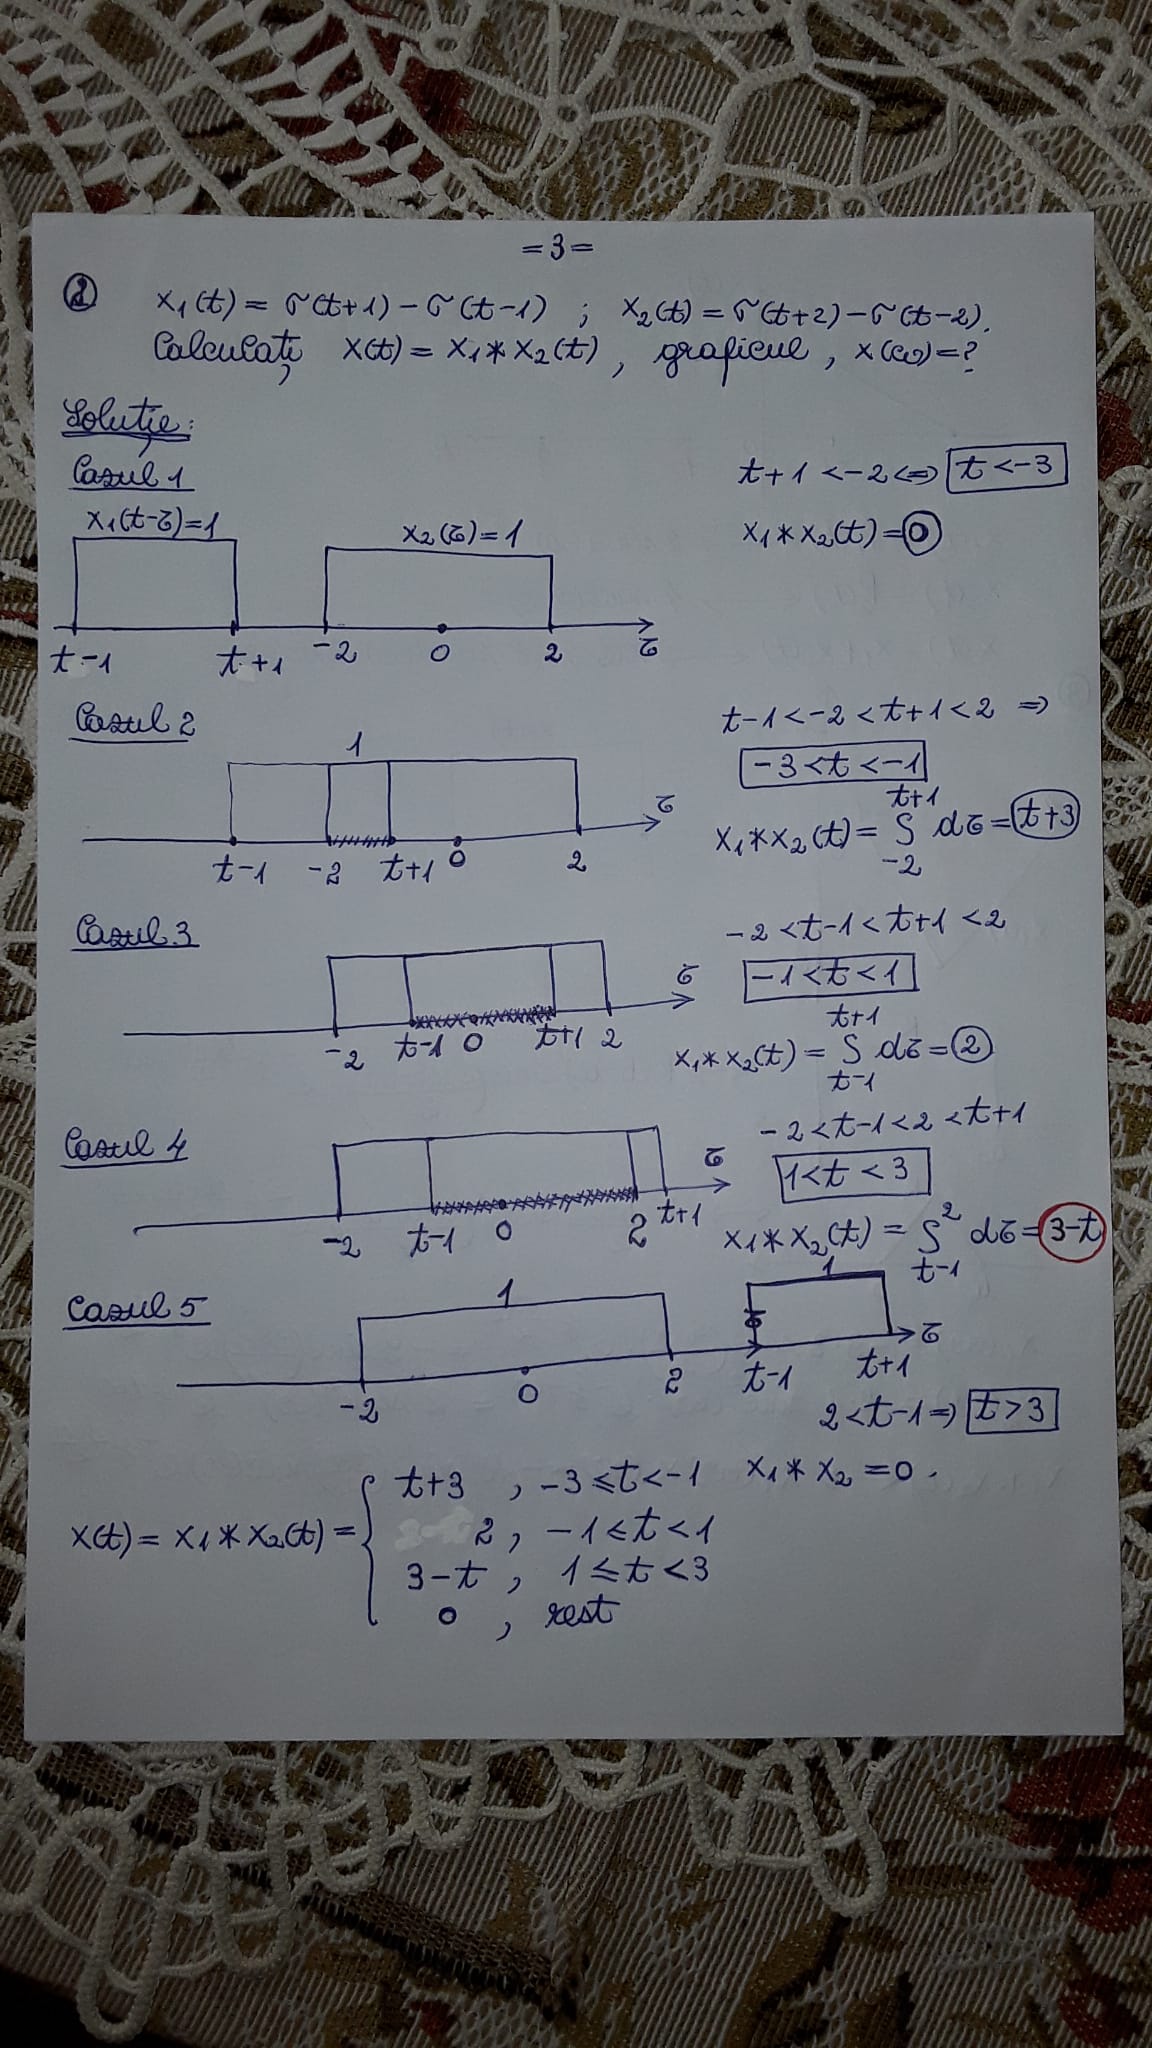 =3=
② x₁(t) = σ(t+1) − σ(t−1) ; x₂(t) = σ(t+2) − σ(t−2).
Calculați x(t) = x₁ * x₂(t), graficul, x(ω) = ?
Soluție:
Cazul 1
t+1 < −2 <=> t < −3
x₁(t−τ)=1 x₂(τ)=1
x₁ * x₂(t) = 0
t−1 t+1 −2 0 2 τ
Cazul 2
t−1 < −2 < t+1 < 2 =>
1
−3 < t < −1
x₁ * x₂(t) = ∫₋₂^(t+1) dτ = t+3
τ
t−1 −2 t+1 0 2
Cazul 3
−2 < t−1 < t+1 < 2
−1 < t < 1
τ
x₁ * x₂(t) = ∫_(t−1)^(t+1) dτ = 2
−2 t−1 0 t+1 2
Cazul 4
−2 < t−1 < 2 < t+1
τ
1 < t < 3
x₁ * x₂(t) = ∫_(t−1)^2 dτ = 3−t
−2 t−1 0 2 t+1
Cazul 5
1 1
τ
−2 0 2 t−1 t+1
2 < t−1 => t > 3
x₁ * x₂ = 0.
x(t) = x₁ * x₂(t) = { t+3 , −3 ≤ t < −1
2 , −1 ≤ t < 1
3−t , 1 ≤ t < 3
0 , rest